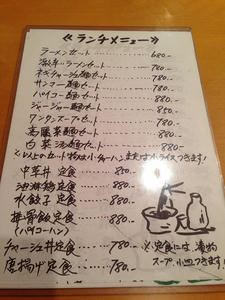 ≪ランチメニュー≫
ラーメンセット 680-
激辛ラーメンセット 780-
ネギチャーシュー麺セット 780-
サンマー麺セット 780-
パイコー麺セット 880-
ジャージャー麺セット 850-
ワンタンスープセット 780-
高菜麺セット 780-
白菜麺セット 880-
※以上のセット物は小チャーハンまたは小ライスつきます!
中華丼 定食 850-
油淋鶏 定食 850-
水餃子 定食 880-
排骨飯 定食 880-
(パイコーハン)
チャーシュー丼 定食 780-
唐揚げ 定食 780-
※定食には、漬物
スープ、小皿つきます!